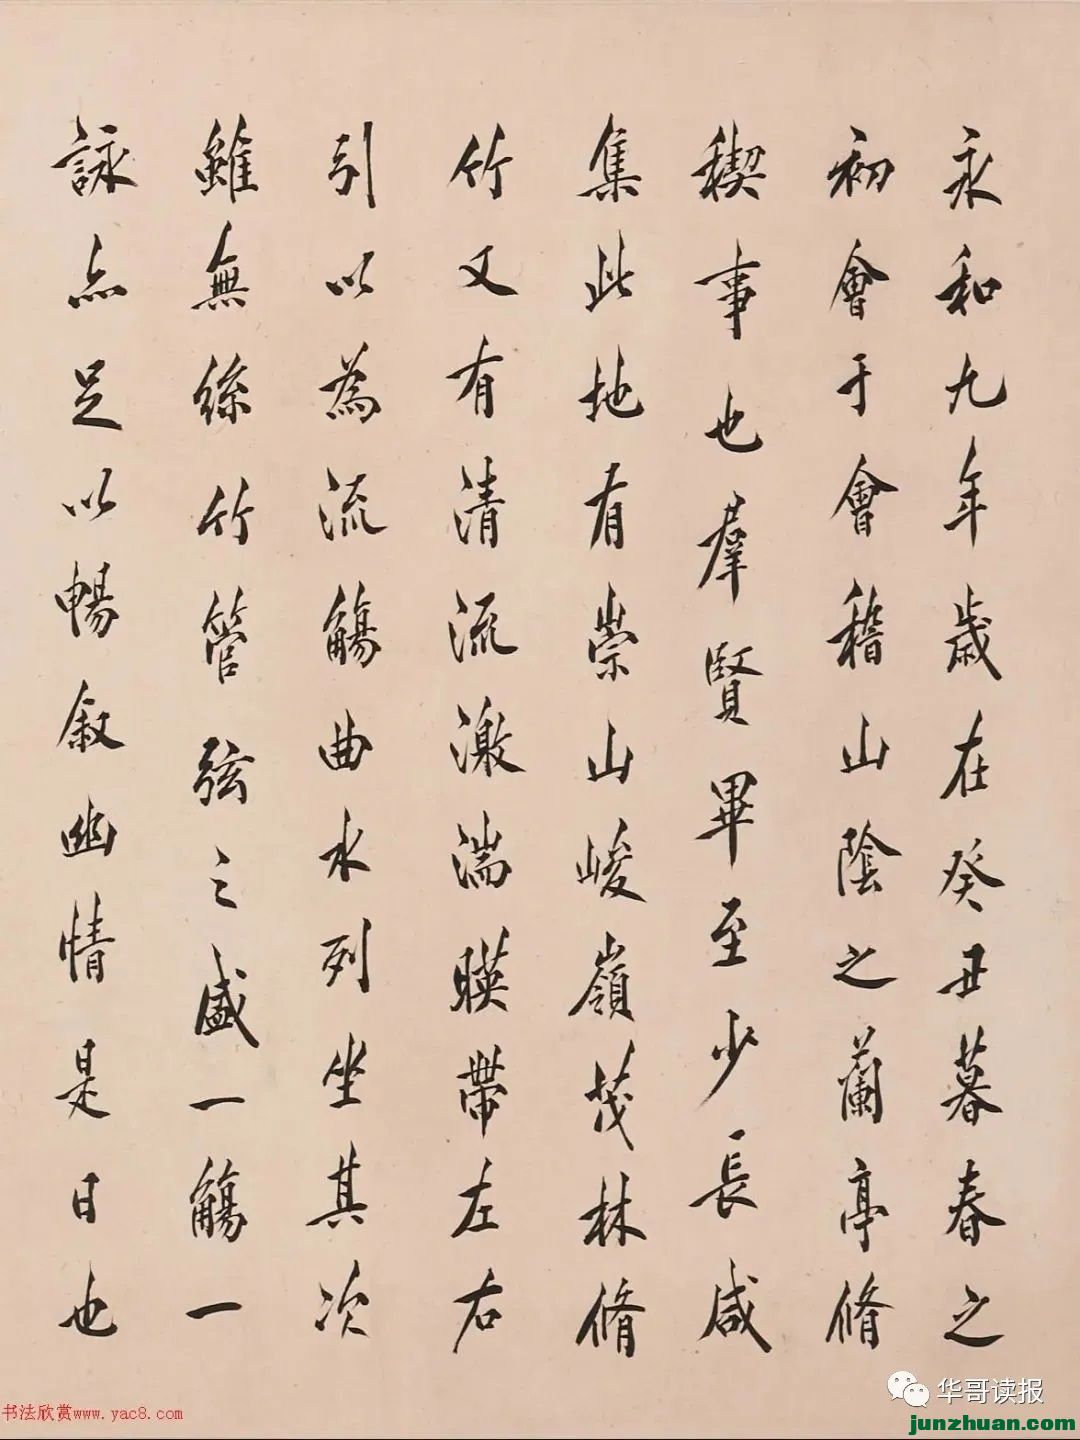 永和九年歲在癸丑暮春之
初會于會稽山陰之蘭亭脩
稧事也羣賢畢至少長咸
集此地有崇山峻嶺茂林脩
竹又有清流激湍暎帶左右
引以為流觴曲水列坐其次
雖無絲竹管弦之盛一觴一
詠亦足以暢叙幽情是日也
书法欣赏www.yac8.com
华哥读报
junzhuan.com